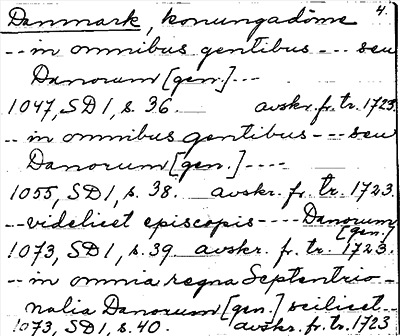 4.
Danmark, konungadöme
-- in omnibus gentibus --- seu
Danorum [gen.] ---
1047, SD 1, s. 36. avskr. fr. tr. 1723.
-- in omnibus gentibus --- seu
Danorum [gen.] ----
1055, SD 1, s. 38. avskr. fr. tr. 1723
-- videlicet episcopis ---- Danorum
[gen.]
1073, SD 1, s. 39. avskr. fr. tr. 1723.
-- in omnia regna Septentrio-
nalia Danorum [gen.] scilicet --
1073, SD 1, s. 40. avskr. fr. tr. 1723